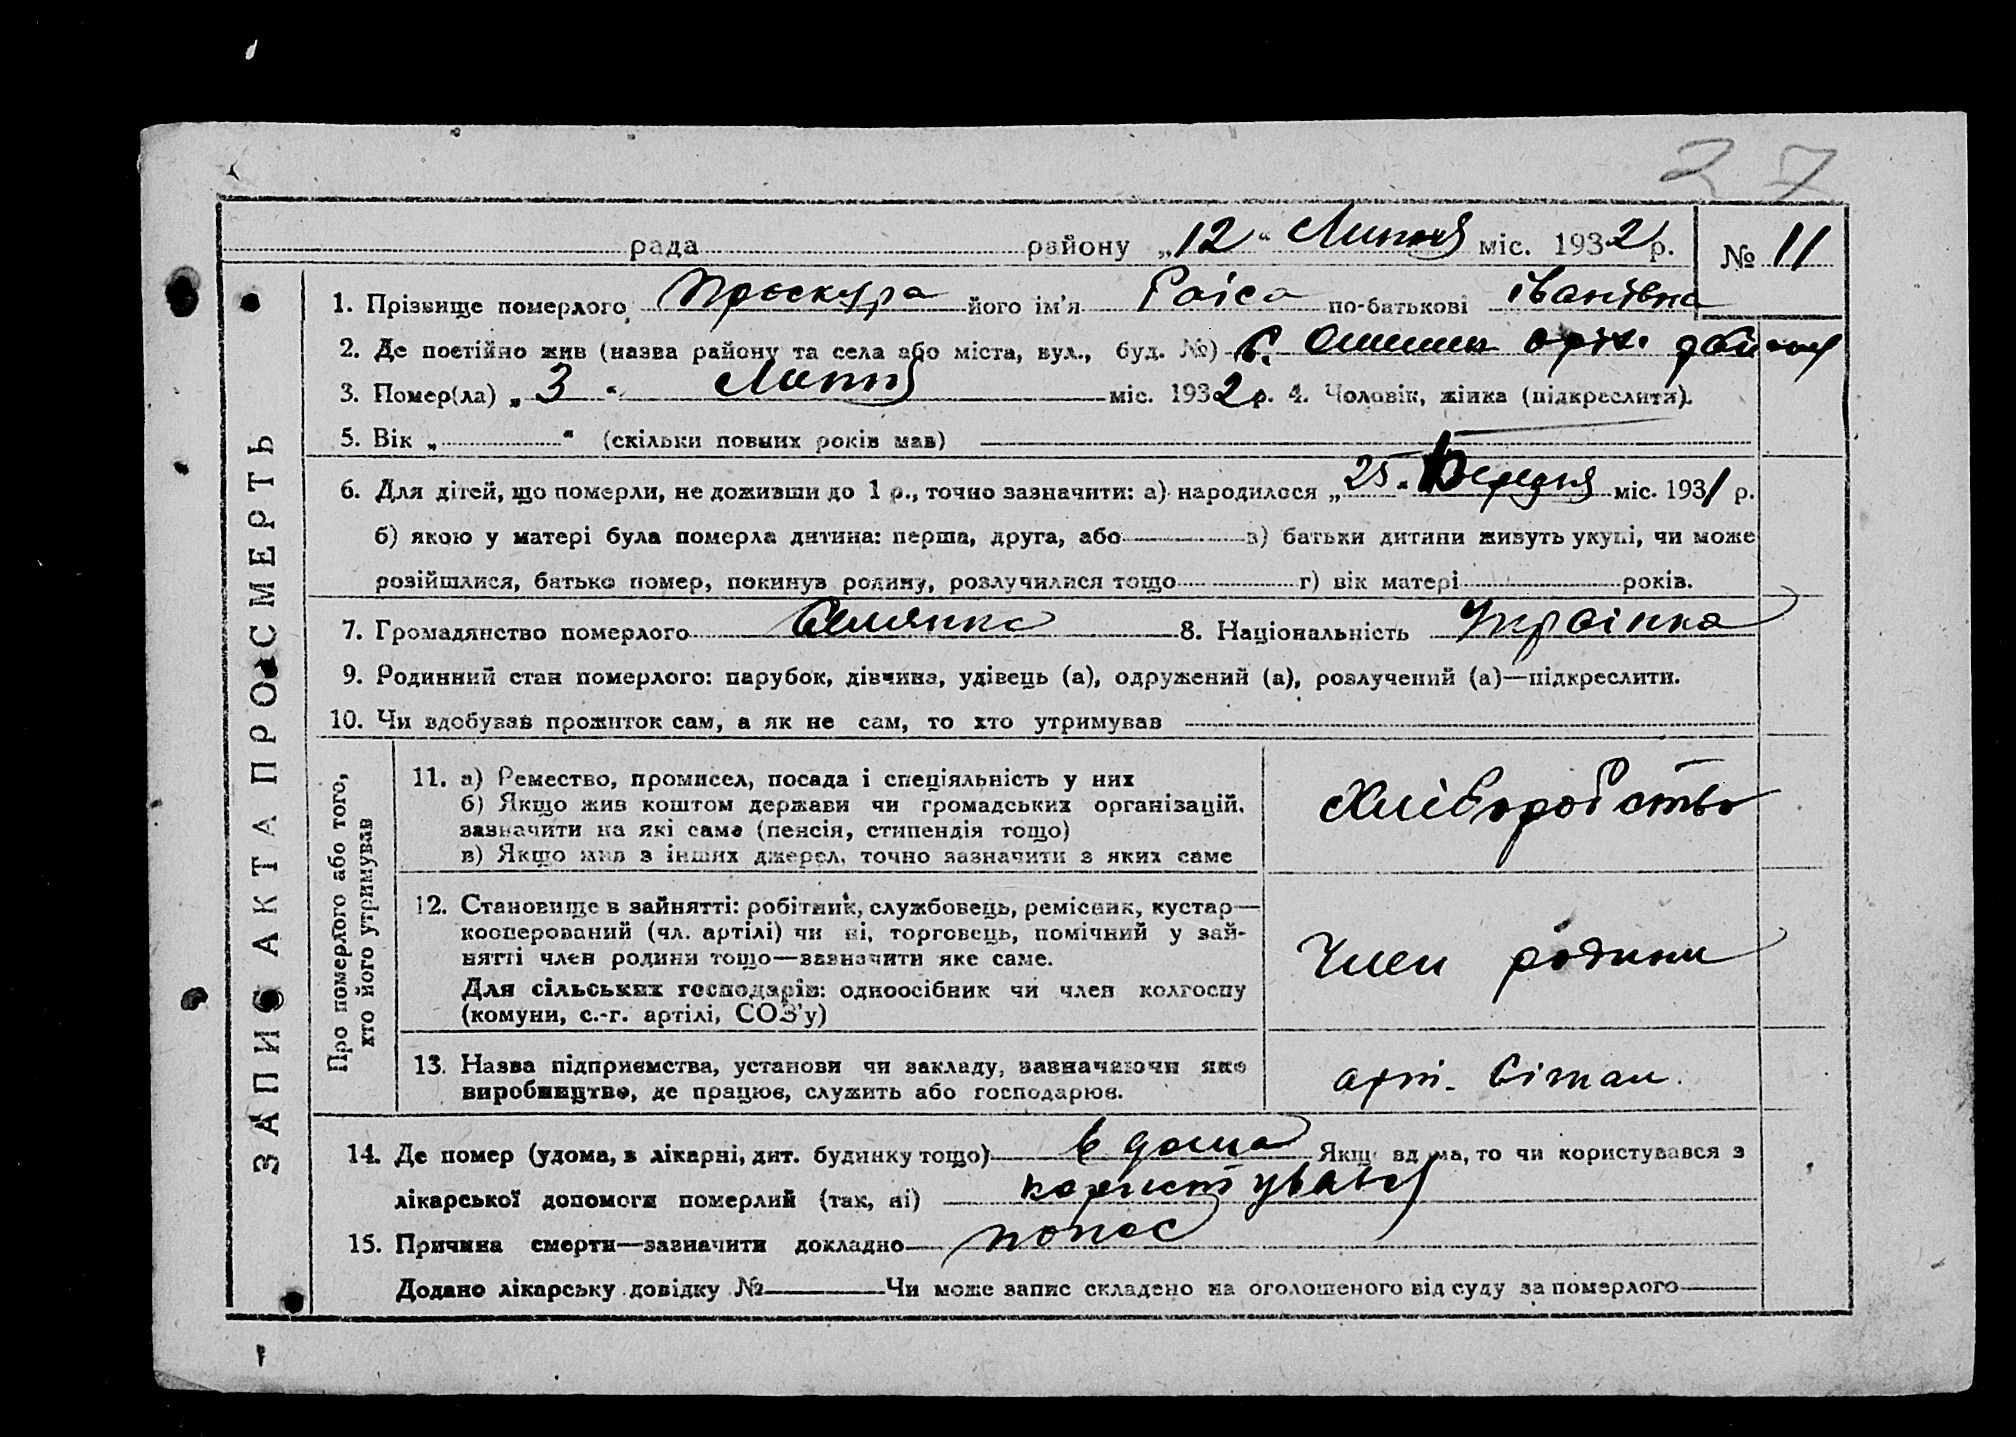 27
рада району „12“ Липня міс. 1932 р. № 11
1. Прізвище померлого Проскура його ім’я Раіса по-батькові Іванівна
2. Де постійно жив (назва району та села або міста, вул., буд. №) с.
3. Помер(ла) „3“ Липня міс. 1932 р. 4. Чоловік, жінка (підкреслити).
5. Вік „ “ (скільки повних років мав)
6. Для дітей, що померли, не доживши до 1 р., точно зазначити: а) народилося „25“ міс. 1931 р.
б) якою у матері була померла дитина: перша, друга, або в) батьки дитини живуть укупі, чи може
розійшлися, батько помер, покинув родину, розлучилися тощо г) вік матері років.
7. Громадянство померлого Селянка 8. Національність Українка
9. Родинний стан померлого: парубок, дівчина, удівець (а), одружений (а), розлучений (а)—підкреслити.
10. Чи здобував прожиток сам, а як не сам, то хто утримував
ЗАПИС АКТА ПРО СМЕРТЬ
Про померлого або того,
хто його утримував
11. а) Ремество, промисел, посада і спеціяльність у них
б) Якщо жив коштом держави чи громадських організацій,
зазначити на які саме (пенсія, стипендія тощо)
в) Якщо жив з інших джерел, точно зазначити з яких саме
Хліборобство
12. Становище в зайнятті: робітник, службовець, ремісник, кустар—
кооперований (чл. артілі) чи ні, торговець, помічний у зай-
нятті член родини тощо—зазначити яке саме.
Для сільських господарів: одноосібник чи член колгоспу
(комуни, с.-г. артілі, СОЗ’у)
Член родини
13. Назва підприємства, установи чи закладу, зазначаючи яке
виробництво, де працює, служить або господарює.
арт.
14. Де помер (удома, в лікарні, дит. будинку тощо) в дома Якщо вдома, то чи користувався з
лікарської допомоги померлий (так, ні) користувався
15. Причина смерти—зазначити докладно понос
Додано лікарську довідку № Чи може запис складено на оголошеного від суду за померлого